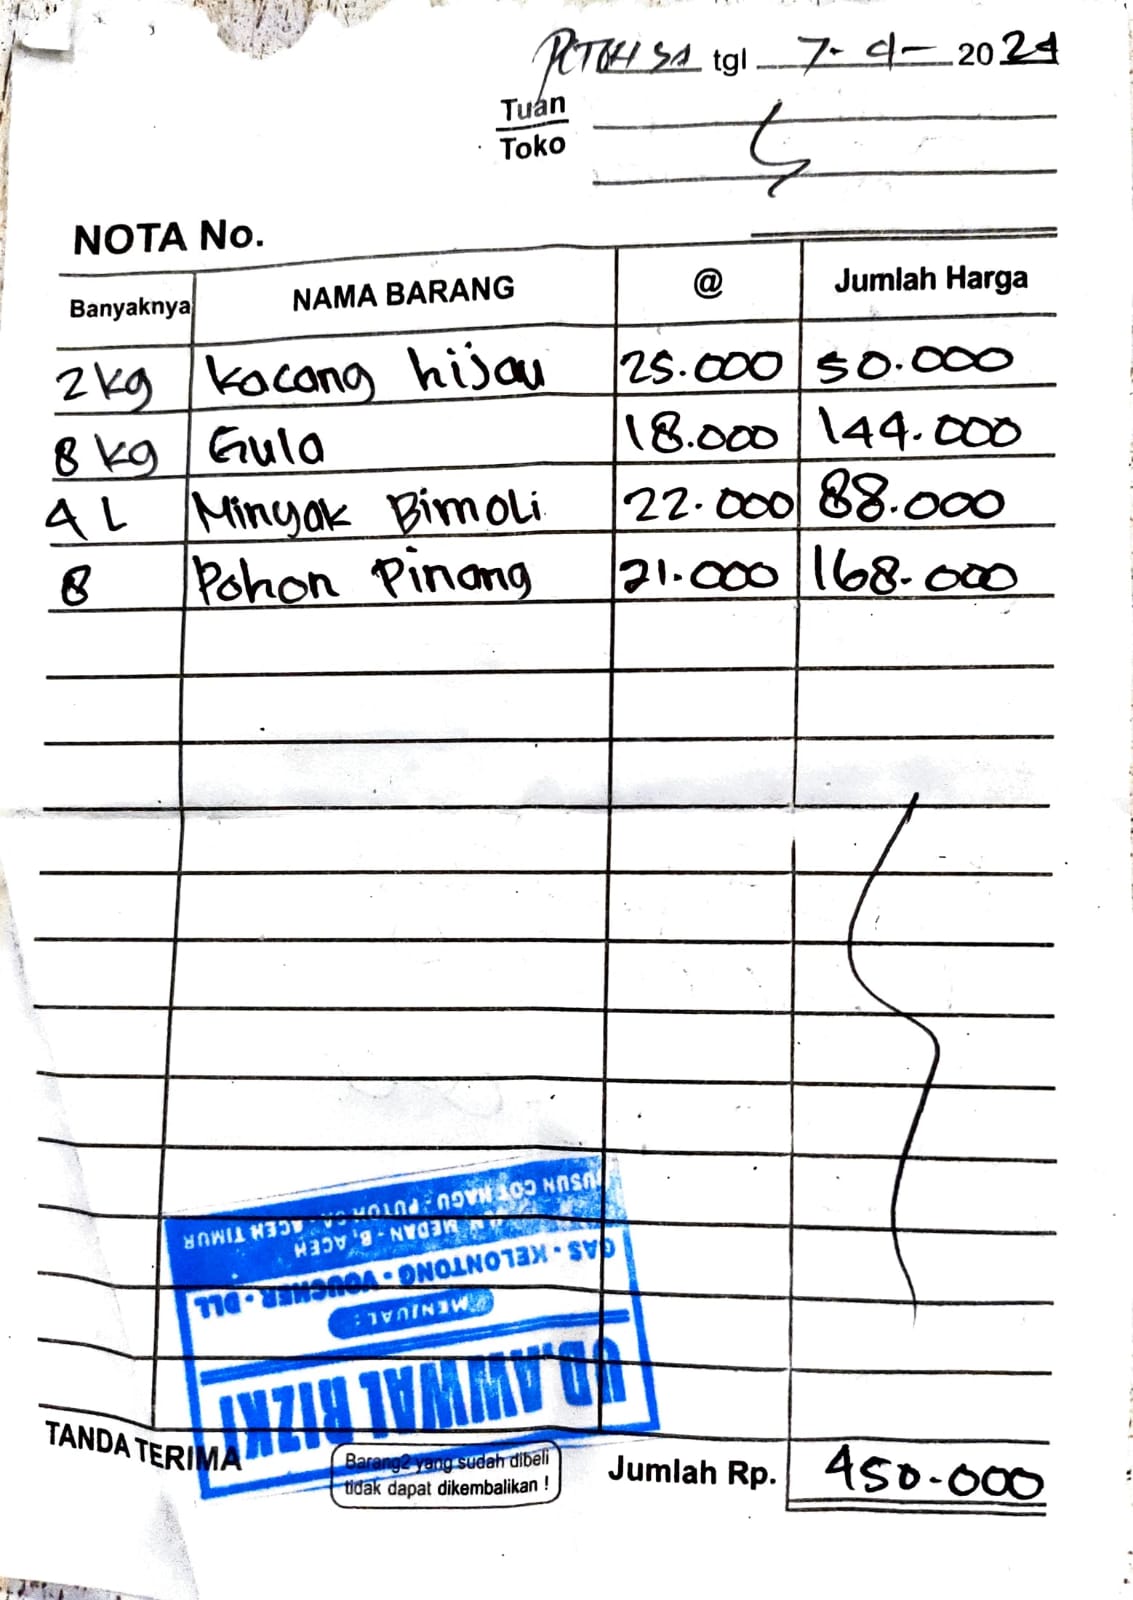 tgl 7-4-2024
Tuan
Toko
NOTA No.
Banyaknya NAMA BARANG @ Jumlah Harga
2 kg kacang hijau 25.000 50.000
8 kg Gula 18.000 144.000
4 L Minyak Bimoli 22.000 88.000
8 Pohon Pinang 21.000 168.000
UD. AWWAL RIZKI
MENJUAL :
GAS - KELONTONG - VOUCHER - DLL
MEDAN - B. ACEH
DUSUN COT HAGU - PUTOH SA - ACEH TIMUR
TANDA TERIMA
Barang2 yang sudah dibeli
tidak dapat dikembalikan !
Jumlah Rp. 450.000